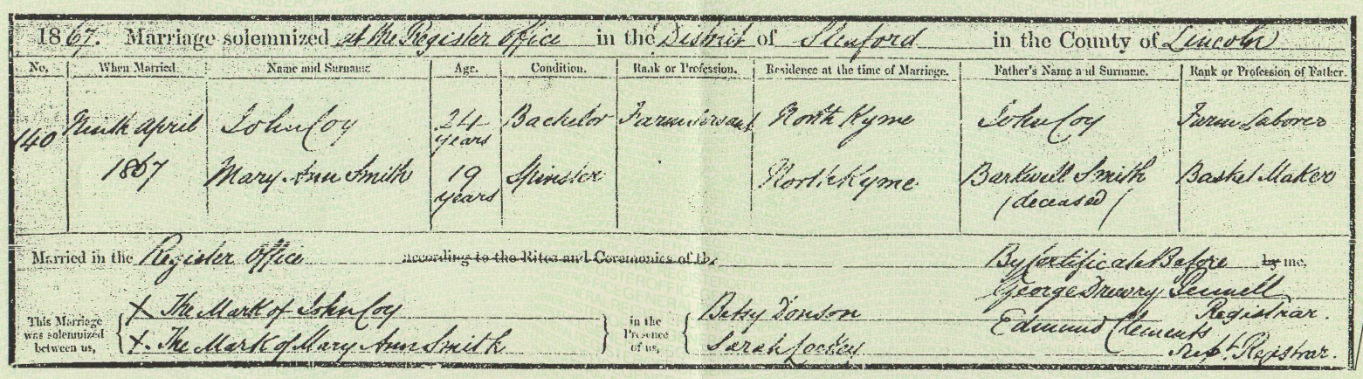 1867. Marriage solemnized at the Register Office in the District of Sleaford in the County of Lincoln
No. When Married Name and Surname Age. Condition. Rank or Profession. Residence at the time of Marriage. Father's Name and Surname. Rank or Profession of Father.
140 Ninth April John Coy 24 years Bachelor Farm Servant North Kyme John Coy Farm Laborer
1867 Mary Ann Smith 19 years Spinster North Kyme Barkwell Smith (deceased) Basket Maker
Married in the Register Office according to the Rites and Ceremonies of the By Certificate Before by me,
This Marriage was solemnized between us, X The Mark of John Coy in the Presence of us, Betsy Donson George Drewry Registrar.
X The Mark of Mary Ann Smith Sarah Edmund Clements Supt. Registrar.